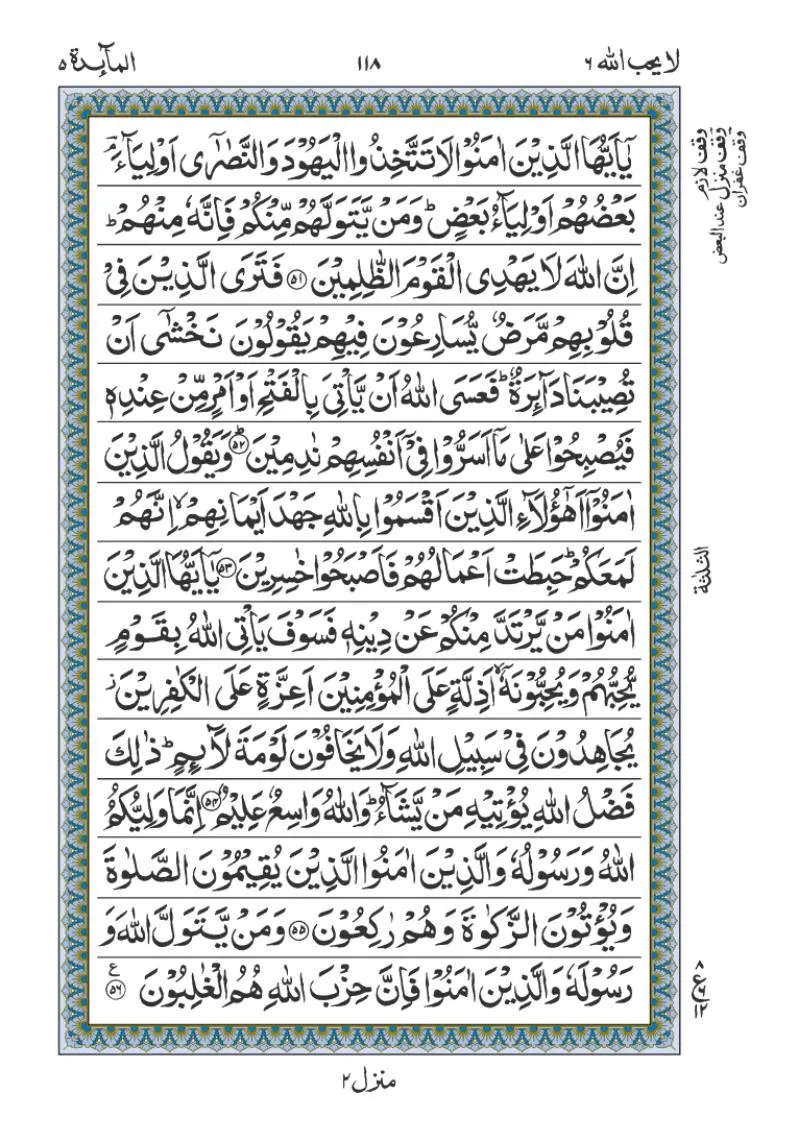 لا يحب الله ٦
١١٨
المآىِٕدة ٥
يٰۤاَيُّهَا الَّذِيْنَ اٰمَنُوْا لَا تَتَّخِذُوا الْيَهُوْدَ وَالنَّصٰرٰۤى اَوْلِيَآءَ ۘؔ
بَعْضُهُمْ اَوْلِيَآءُ بَعْضٍ ؕ وَمَنْ يَّتَوَلَّهُمْ مِّنْكُمْ فَاِنَّهٗ مِنْهُمْ ؕ
اِنَّ اللّٰهَ لَا يَهْدِى الْقَوْمَ الظّٰلِمِيْنَ ﴿٥١﴾ فَتَرَى الَّذِيْنَ فِىْ
قُلُوْبِهِمْ مَّرَضٌ يُّسَارِعُوْنَ فِيْهِمْ يَقُوْلُوْنَ نَخْشٰۤى اَنْ
تُصِيْبَنَا دَآىِٕرَةٌ ؕ فَعَسَى اللّٰهُ اَنْ يَّاْتِىَ بِالْفَتْحِ اَوْ اَمْرٍ مِّنْ عِنْدِهٖ
فَيُصْبِحُوْا عَلٰى مَاۤ اَسَرُّوْا فِىْۤ اَنْفُسِهِمْ نٰدِمِيْنَ ؕ﴿٥٢﴾ وَيَقُوْلُ الَّذِيْنَ
اٰمَنُوْۤا اَهٰۤؤُلَآءِ الَّذِيْنَ اَقْسَمُوْا بِاللّٰهِ جَهْدَ اَيْمَانِهِمْ ۙ اِنَّهُمْ
لَمَعَكُمْ ؕ حَبِطَتْ اَعْمَالُهُمْ فَاَصْبَحُوْا خٰسِرِيْنَ ﴿٥٣﴾ يٰۤاَيُّهَا الَّذِيْنَ
اٰمَنُوْا مَنْ يَّرْتَدَّ مِنْكُمْ عَنْ دِيْنِهٖ فَسَوْفَ يَاْتِى اللّٰهُ بِقَوْمٍ
يُّحِبُّهُمْ وَيُحِبُّوْنَهٗۤ ۙ اَذِلَّةٍ عَلَى الْمُؤْمِنِيْنَ اَعِزَّةٍ عَلَى الْكٰفِرِيْنَ ؗ
يُجَاهِدُوْنَ فِىْ سَبِيْلِ اللّٰهِ وَلَا يَخَافُوْنَ لَوْمَةَ لَآىِٕمٍ ؕ ذٰلِكَ
فَضْلُ اللّٰهِ يُؤْتِيْهِ مَنْ يَّشَآءُ ؕ وَاللّٰهُ وَاسِعٌ عَلِيْمٌ ﴿٥٤﴾ اِنَّمَا وَلِيُّكُمُ
اللّٰهُ وَرَسُوْلُهٗ وَالَّذِيْنَ اٰمَنُوا الَّذِيْنَ يُقِيْمُوْنَ الصَّلٰوةَ
وَيُؤْتُوْنَ الزَّكٰوةَ وَهُمْ رٰكِعُوْنَ ﴿٥٥﴾ وَمَنْ يَّتَوَلَّ اللّٰهَ وَ
رَسُوْلَهٗ وَالَّذِيْنَ اٰمَنُوْا فَاِنَّ حِزْبَ اللّٰهِ هُمُ الْغٰلِبُوْنَ ﴿٥٦﴾ ع
وقف لازم
وقف منزل عند البعض
وقف غفران
الثلثة
٨
ع ٦
١٢
منزل ٢